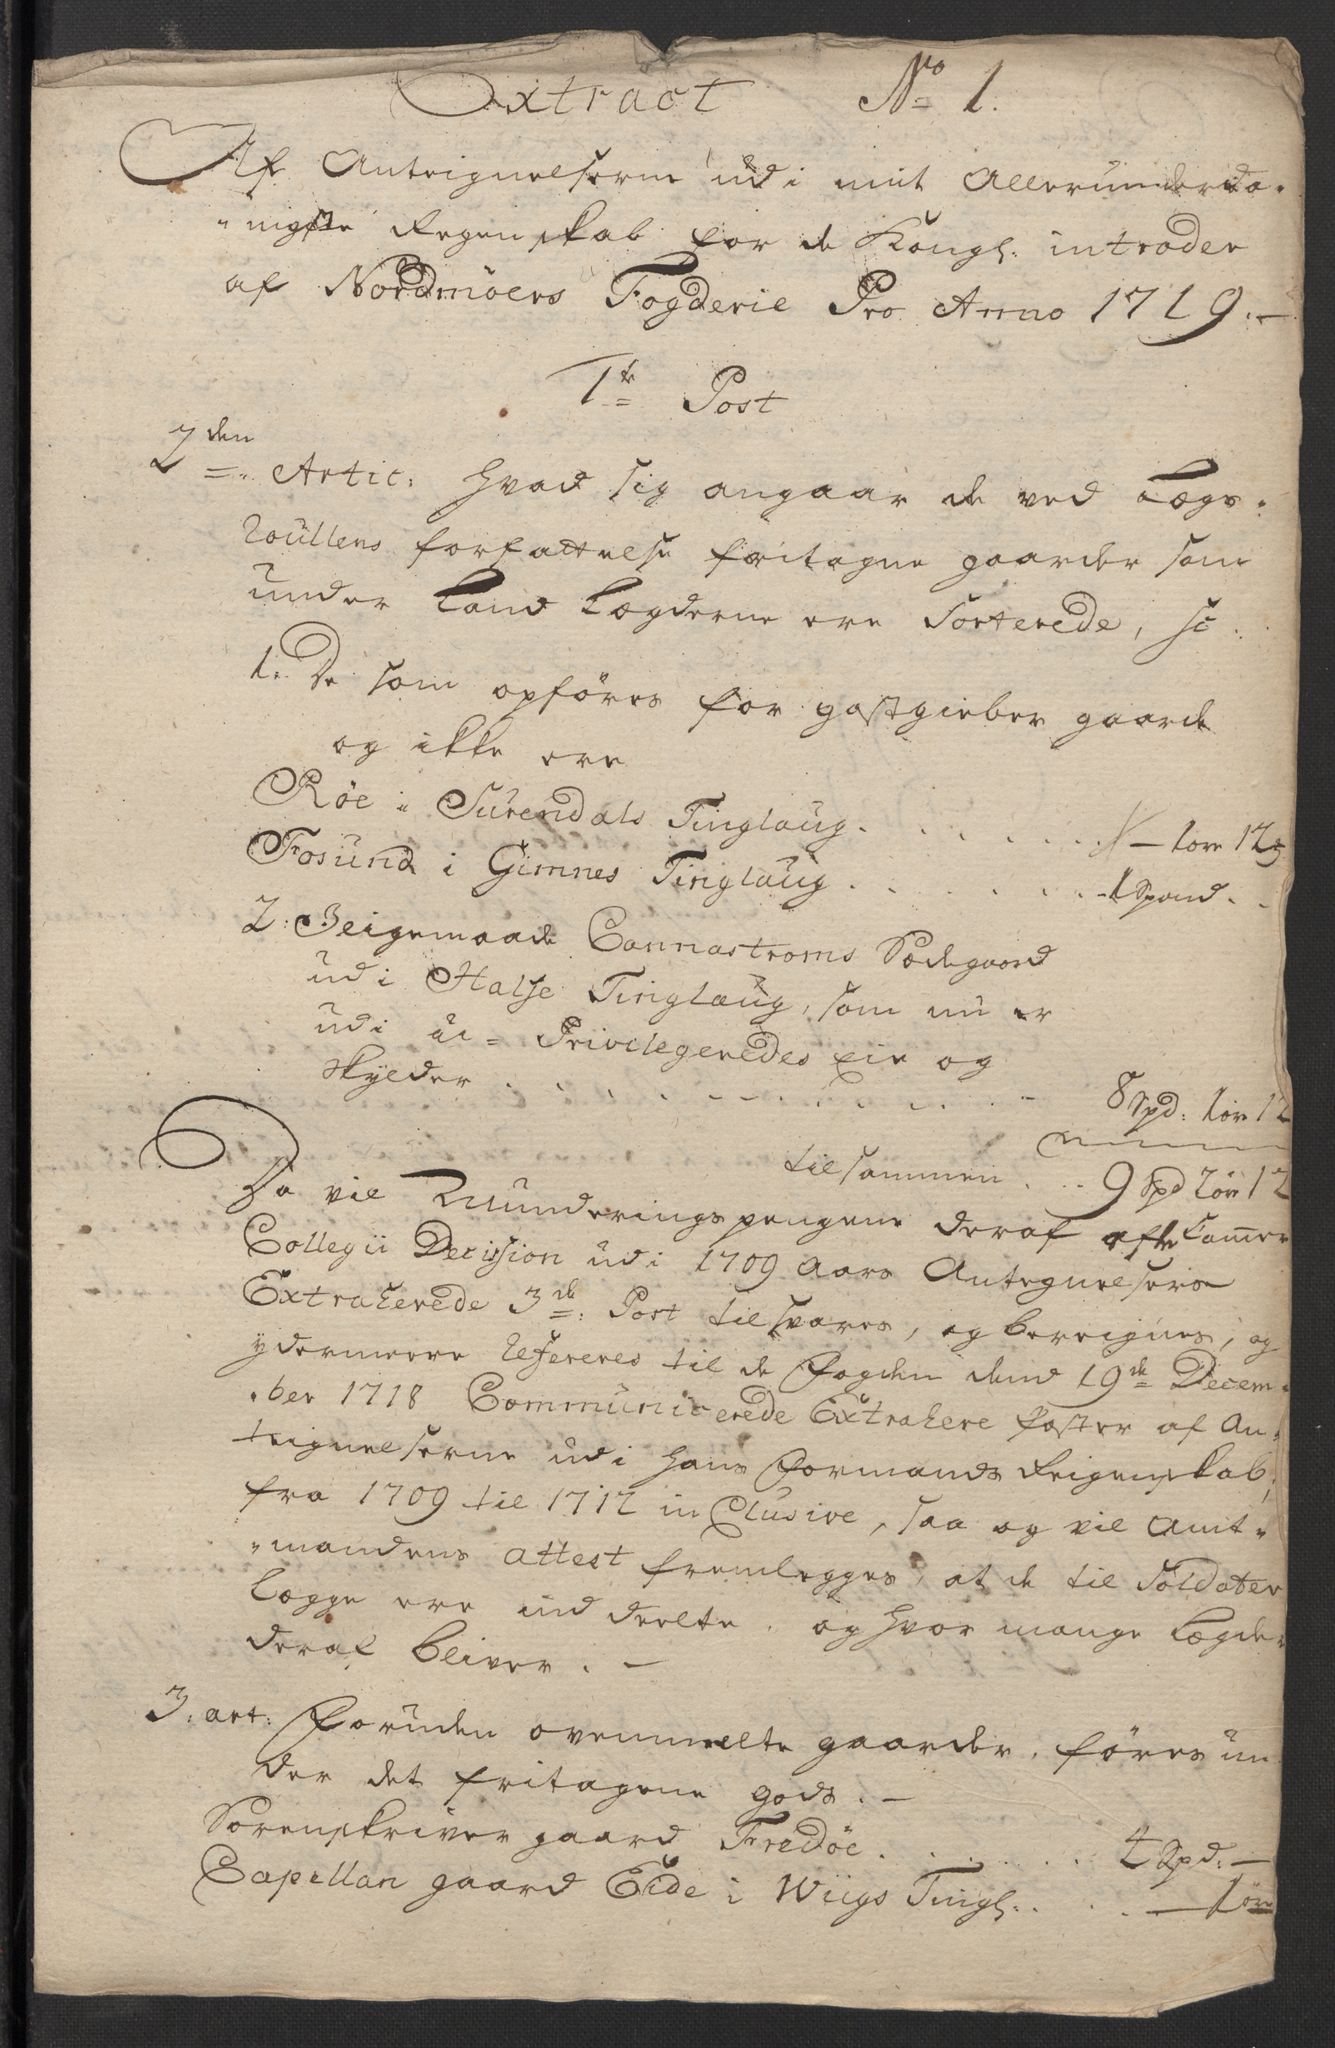 Extract No 1.
Af Anteignelserne udi mit Allerunderda-
nigste Regenskab for de Kongl: intrader
af Nordmöers Fogderie Pro Anno 1719.-
1te Post
2den Artic: Hvad sig angaar de ved Lægs-
Roullens forfattelse fritagne gaarder som
under Land Lægderne ere Sorterede, sc:
1: De som opföres for gastgieber gaarde
og ikke ere
Röe i Surendals Tinglaug - 1ore 12
Fosund i Gimnes Tinglaug 1 Spand
2: Ligemaade Cannastroms Sædegaard
udi Halse Tinglaug, som nu er
udi u-Privilegeredes Eie og
skylder 8 Spd: 1ör 12
tilsammen 9 Spd 2ör 12
Da vil Munderings pengene deraf efter Camer
Collegii Decission udi 1709 Aars Antegnelsers
Extraherede 3de: Post tilsvares, og bereignes, og
ydermeere Refereres til de Fogden dend 19de Decem-
ber 1718 Communicerede Extrahere Poster af An-
teignelserne udi hans Formands Reigenskab,
fra 1709 til 1712 inClusive, saa og vil Amt-
mandens attest fremlegges, at de til Soldater
Lægge ere inddeelte, og hvor mange Lægder
deraf bliver. -
3: art: Foruden ovenmelte gaarder, föres un
der det fritagene gods. -
Sorenskriver gaard Fredöe 4 Spd: -
Capellan gaard Eide i Wiigs Tingl: - 1öre